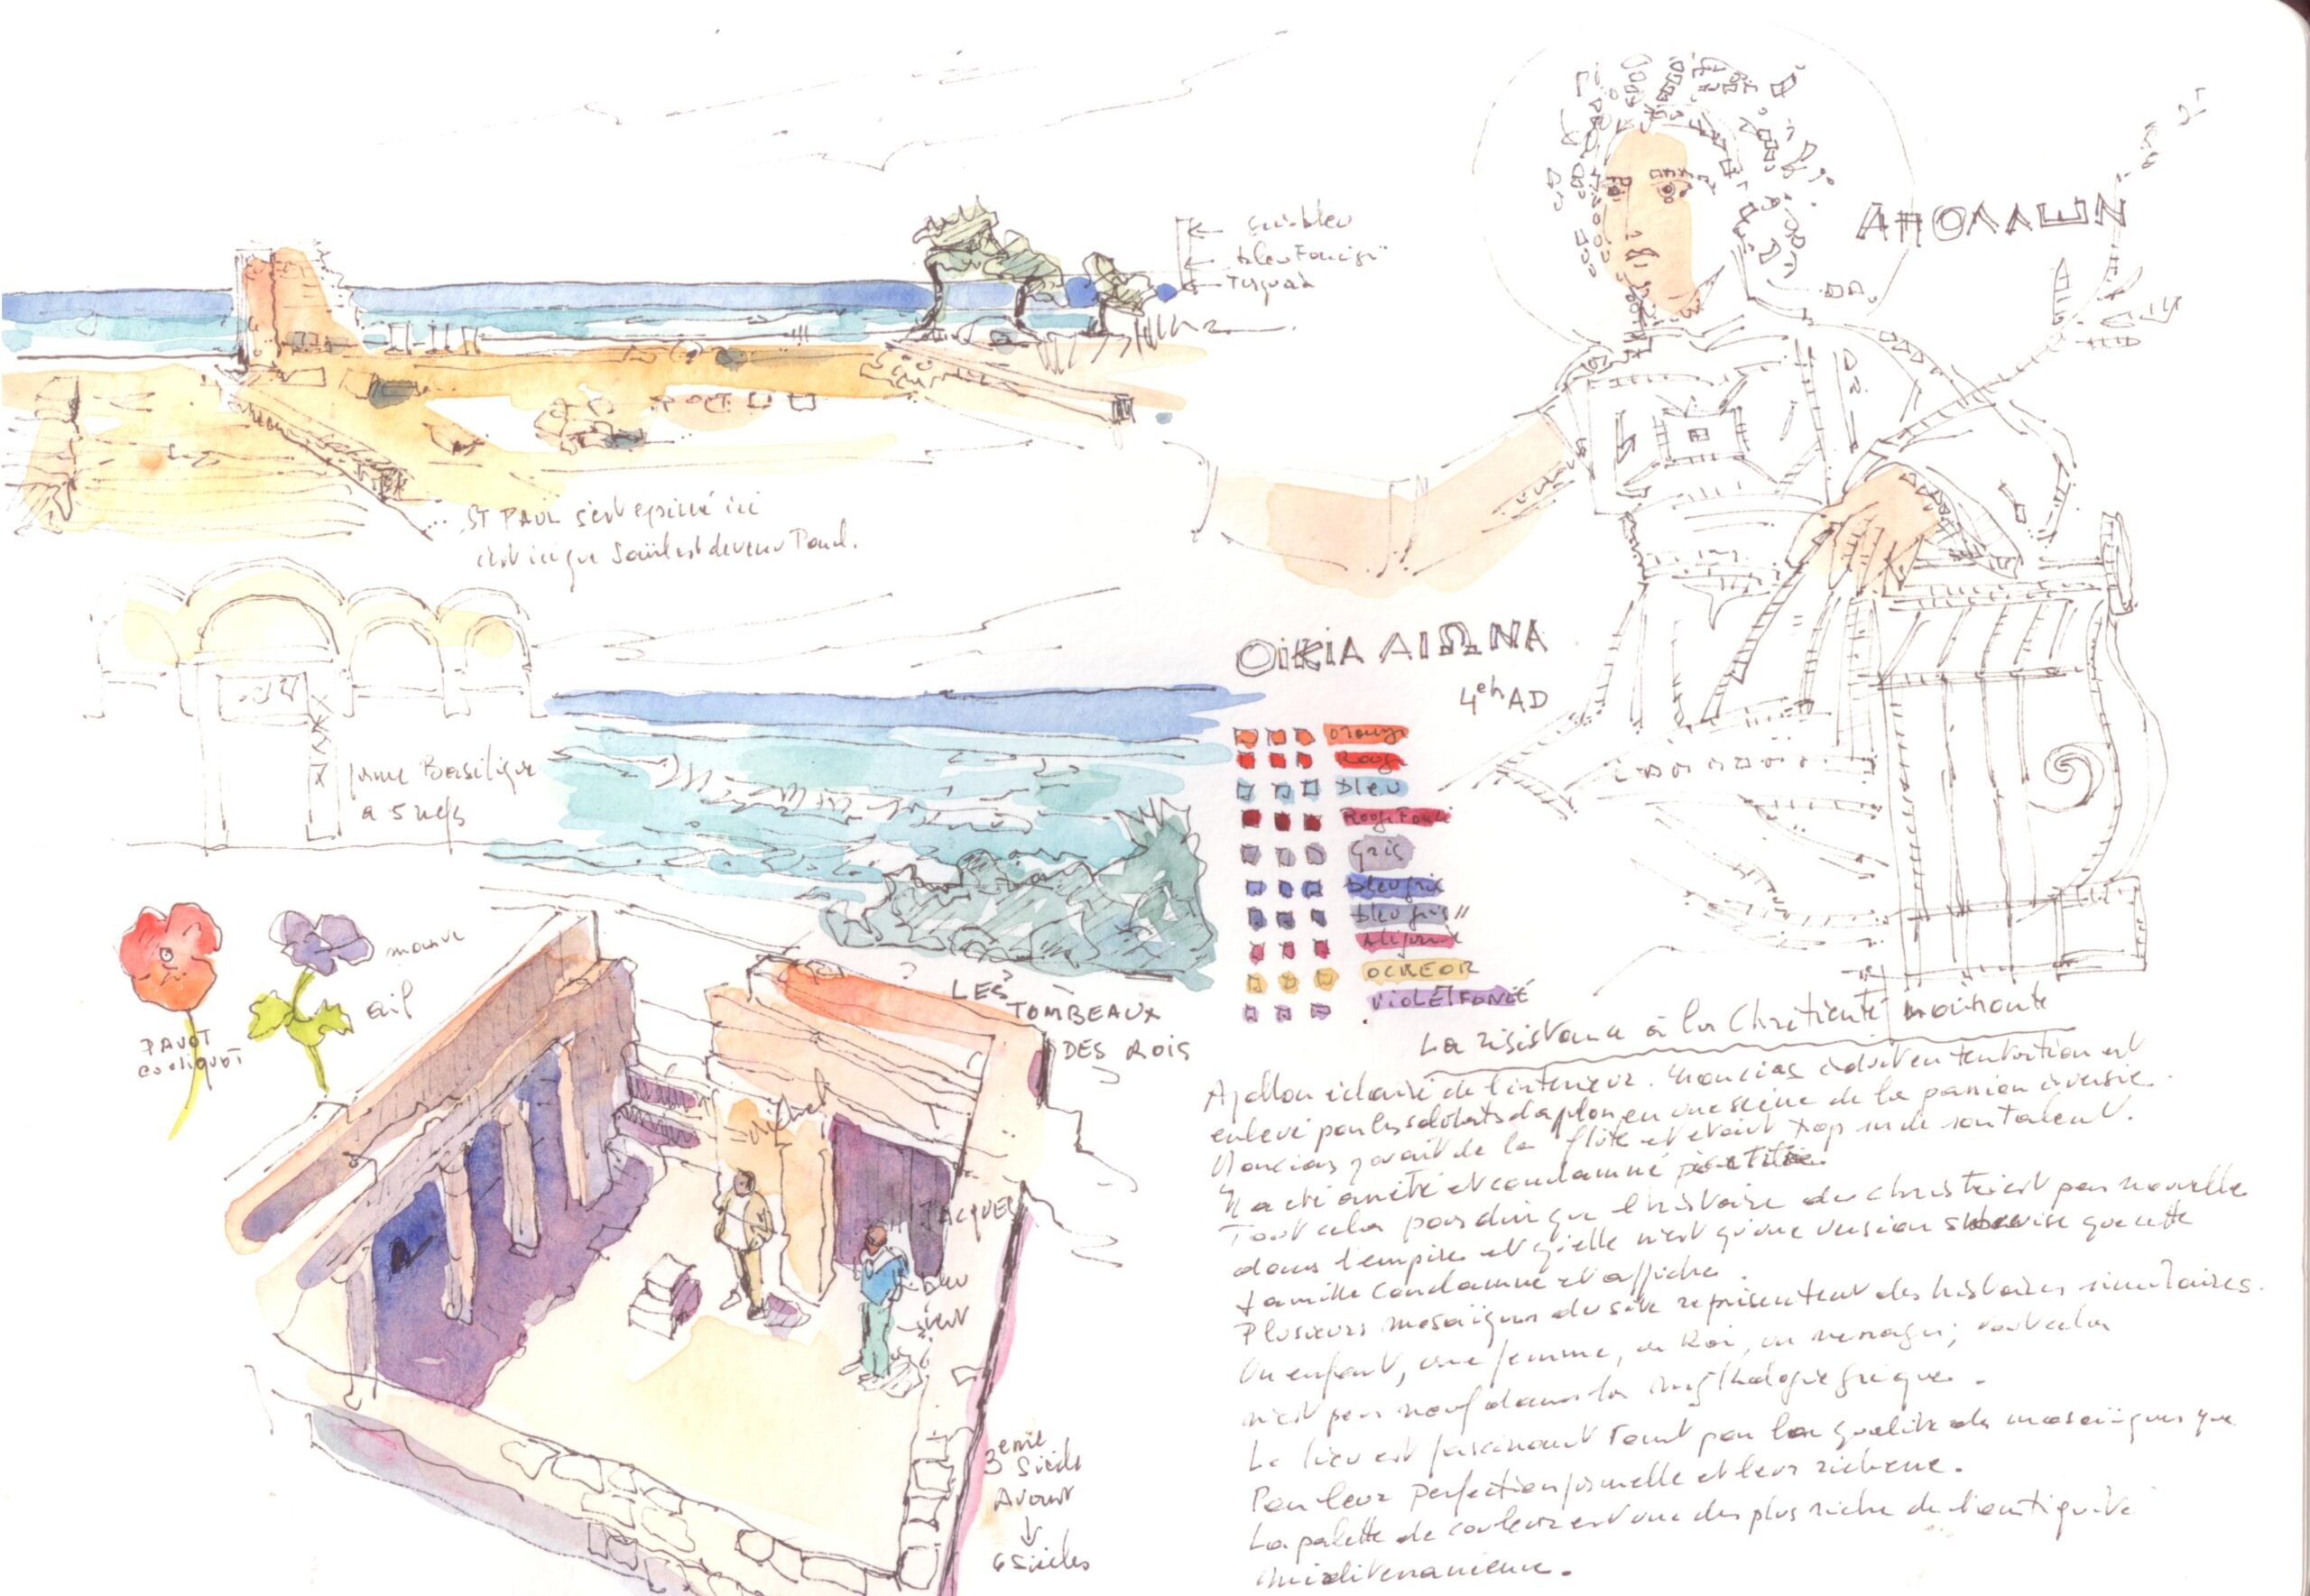 bleu foncé
Turquoise
ΑΠΟΛΛΕΝ
ST PAUL s'est exprimé ici
c'est ici que Saül est devenu Paul.
ΟΙΚΙΑ ΑΙΩΝΑ
4eh AD
Orange
Rouge
bleu
Rouge Foncé
Gris
bleu gris
bleu gris II
OCRE OR
VIOLET FONCÉ
forme Basilique
a 5 nefs
mauve
ail
PAVOT
coquliquot
LES
TOMBEAUX
DES ROIS
JACQUES
bleu
vert
3eme
Siècle
Avant
6 Siècles
La résistance à la Chrétienté naissante
Apollon éclairé de l'intérieur. est
enlevé par les soldats en une scène de la passion inversée.
jouait de la flûte et était trop sur de son talent.
Il a été arrêté et condamné
Tout cela pour dire que l'histoire du christ n'est pas nouvelle
dans l'empire et qu'elle n'est qu'une version que cette
famille condamne et affiche.
Plusieurs mosaïques du site représentent des histoires similaires.
Un enfant, une femme, un Roi, un message; tout cela
n'est pas neuf dans la mythologie grecque.
Le lieu est fascinant tant par la qualité des mosaïques que
Par leur perfection formelle et leur richesse.
La palette de couleurs est une des plus riche de l'antiquité
méditerranéenne.